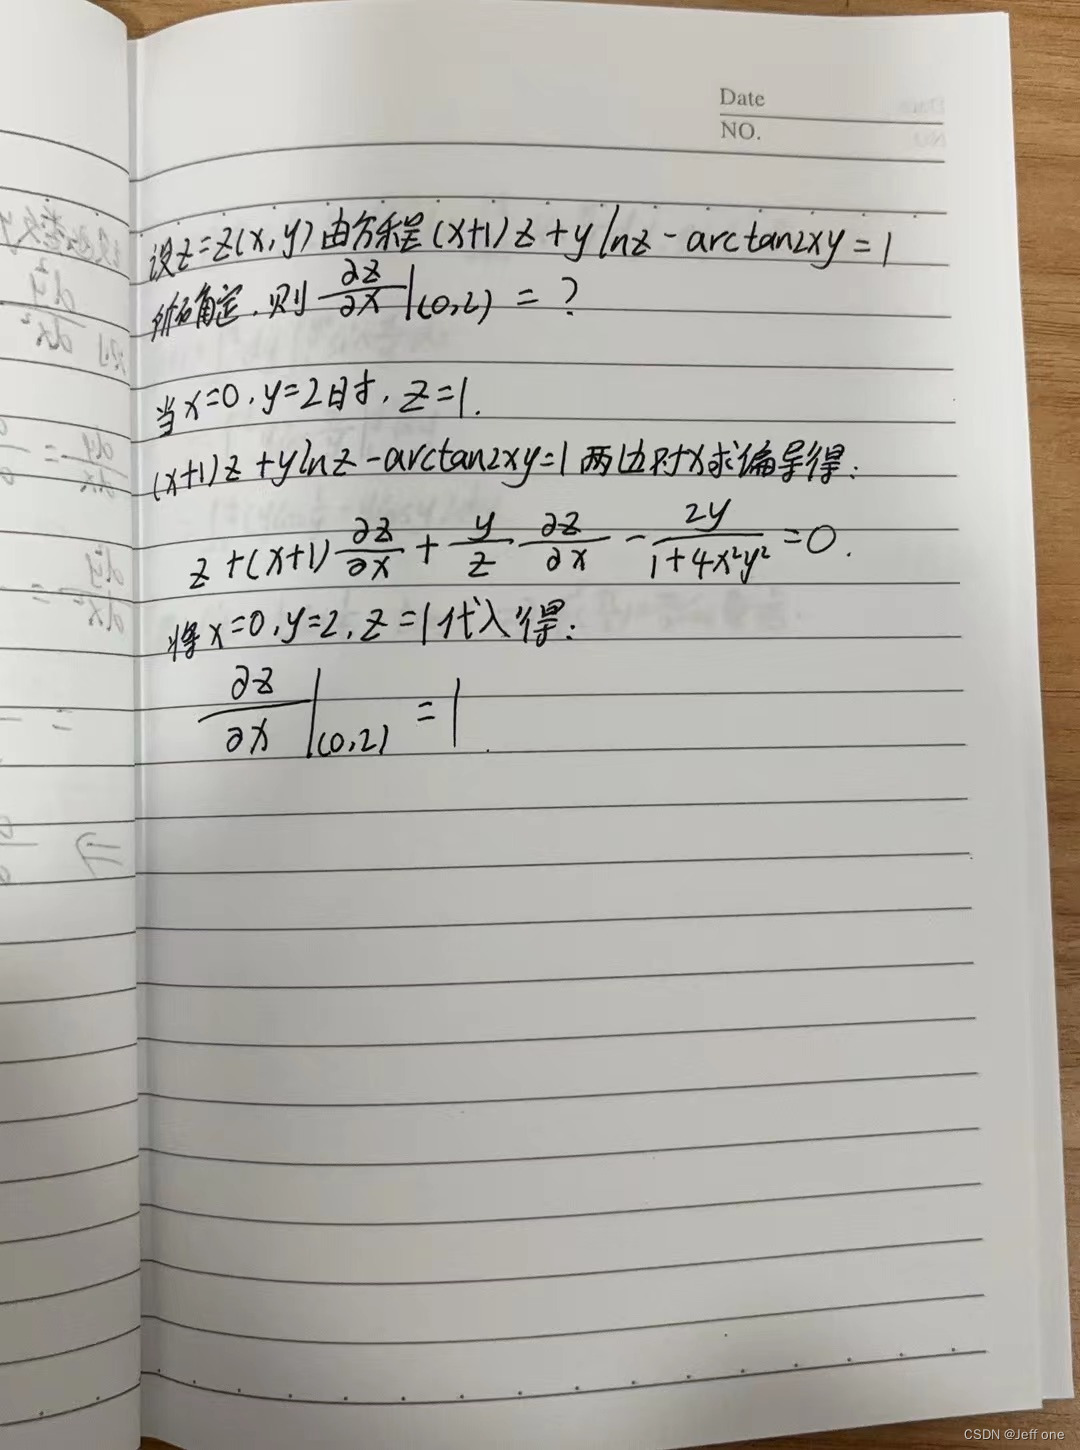 Date
NO.
设z=z(x,y)由方程(x+1)z+ylnz-arctan2xy=1
所确定.则∂z/∂x|(0,2)=?
当x=0.y=2时,z=1.
(x+1)z+ylnz-arctan2xy=1两边对x求偏导得:
z+(x+1)∂z/∂x+y/z ∂z/∂x-2y/(1+4x²y²)=0.
将x=0,y=2,z=1代入得:
∂z/∂x|(0,2)=1
CSDN @Jeff one